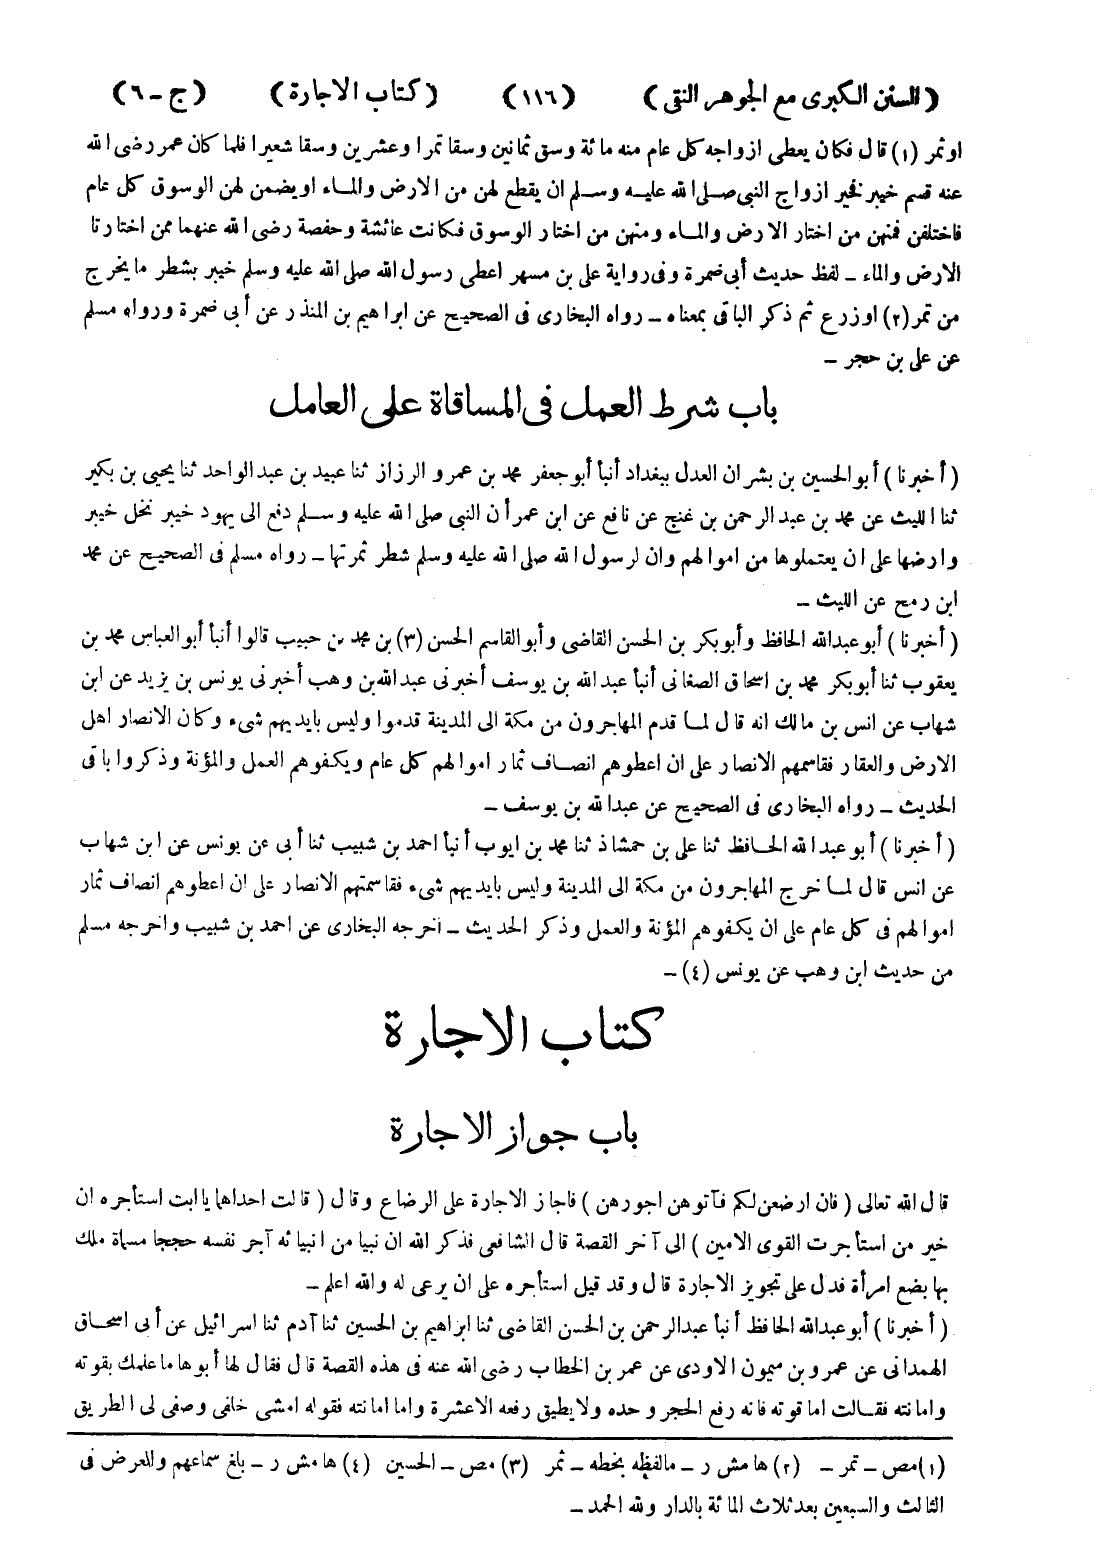 (السنن الكبرى مع الجوهر النقى) (١١٦) (كتاب الاجارة) (ج-٦)
اوثمر (١) قال فكان يعطى ازواجه كل عام منه مائة وسق ثمانين وسقا تمرا وعشرين وسقا شعيرا فلما كان عمر رضى الله
عنه قسم خيبر فخير ازواج النبى صلى الله عليه وسلم ان يقطع لهن من الارض والماء او يضمن لهن الوسوق كل عام
فاختلفن فمنهن من اختار الارض والماء ومنهن من اختار الوسوق فكانت عائشة وحفصة رضى الله عنهما ممن اختارتا
الارض والماء ــ لفظ حديث أبى ضمرة وفى رواية على بن مسهر اعطى رسول الله صلى الله عليه وسلم خيبر بشطر ما يخرج
من تمر (٢) اوزرع ثم ذكر الباقى بمعناه ــ رواه البخارى فى الصحيح عن ابراهيم بن المنذر عن أبى ضمرة ورواه مسلم
عن على بن حجر ــ
باب شرط العمل فى المساقاة على العامل
(أخبرنا) أبو الحسين بن بشران العدل ببغداد أنبأ أبو جعفر محمد بن عمرو الرزاز ثنا عبيد بن عبد الواحد ثنا يحيى بن بكير
ثنا الليث عن محمد بن عبد الرحمن بن غنج عن نافع عن ابن عمر أن النبى صلى الله عليه وسلم دفع الى يهود خيبر نخل خيبر
وارضها على ان يعتملوها من اموالهم وان لرسول الله صلى الله عليه وسلم شطر ثمرتها ــ رواه مسلم فى الصحيح عن محمد
ابن رمح عن الليث ــ
(أخبرنا) أبو عبد الله الحافظ وأبو بكر بن الحسن القاضى وأبو القاسم الحسن (٣) بن محمد بن حبيب قالوا أنبأ أبو العباس محمد بن
يعقوب ثنا أبو بكر محمد بن اسحاق الصغانى أنبأ عبد الله بن يوسف أخبرنى عبد الله بن وهب أخبرنى يونس بن يزيد عن ابن
شهاب عن انس بن مالك انه قال لما قدم المهاجرون من مكة الى المدينة قدموا وليس بايديهم شىء وكان الانصار اهل
الارض والعقار فقاسمهم الانصار على ان اعطوهم انصاف ثمار اموالهم كل عام ويكفوهم العمل والمؤنة وذكروا باقى
الحديث ــ رواه البخارى فى الصحيح عن عبد الله بن يوسف ــ
(أخبرنا) أبو عبد الله الحافظ ثنا على بن حمشاذ ثنا محمد بن ايوب أنبأ احمد بن شبيب ثنا أبى عن يونس عن ابن شهاب
عن انس قال لما خرج المهاجرون من مكة الى المدينة وليس بايديهم شىء فقاسمتهم الانصار على ان اعطوهم انصاف ثمار
اموالهم فى كل عام على ان يكفوهم المؤنة والعمل وذكر الحديث ــ اخرجه البخارى عن احمد بن شبيب واخرجه مسلم
من حديث ابن وهب عن يونس (٤) ــ
كتاب الاجارة
باب جواز الاجارة
قال الله تعالى (فان ارضعن لكم فآتوهن اجورهن) فاجاز الاجارة على الرضاع وقال (قالت احداهما يا ابت استأجره ان
خير من استأجرت القوى الامين) الى آخر القصة قال الشافعى فذكر الله ان نبيا من انبيائه آجر نفسه حججا مسماة ملك
بها بضع امرأة فدل على تجويز الاجارة قال وقد قيل استأجره على ان يرعى له والله اعلم ــ
(أخبرنا) أبو عبد الله الحافظ أنبأ عبد الرحمن بن الحسن القاضى ثنا ابراهيم بن الحسين ثنا آدم ثنا اسرائيل عن أبى اسحاق
الهمدانى عن عمرو بن ميمون الاودى عن عمر بن الخطاب رضى الله عنه فى هذه القصة قال فقال لها أبوها ما علمك بقوته
وامانته فقالت اما قوته فانه رفع الحجر وحده ولا يطيق رفعه الا عشرة واما امانته فقوله امشى خلفى وصفى لى الطريق
(١) مص ــ تمر ــ (٢) هامش ر ــ مالفظه بخطه ــ ثمر (٣) مص ــ الحسين (٤) هامش ر ــ بلغ سماعهم والعرض فى
الثالث والسبعين بعد ثلاث المائة بالدار ولله الحمد ــ